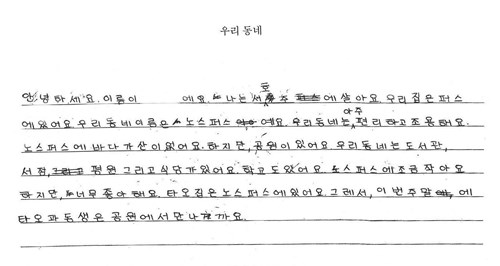 우리 동네
안녕하세요. 이름이 예요. 나는 서호주 에 살아요. 우리 집은 퍼스
에 있어요 우리 동네 이름은 노스퍼스 예요. 우리 동네는 아주 편리하고 조용해요.
노스퍼스에 바다가 산이 없어요. 하지만, 공원이 있어요. 우리 동네는 도서관,
서점, 병원 그리고 식당가 있어요. 학교도 있어요. 노스퍼스에 조금 작아요
하지만, 너무 좋아해요. 타오 집은 노스퍼스에 있어요. 그레서, 이번 주말 에
타오과 동생은 공원에서 만나 까요.